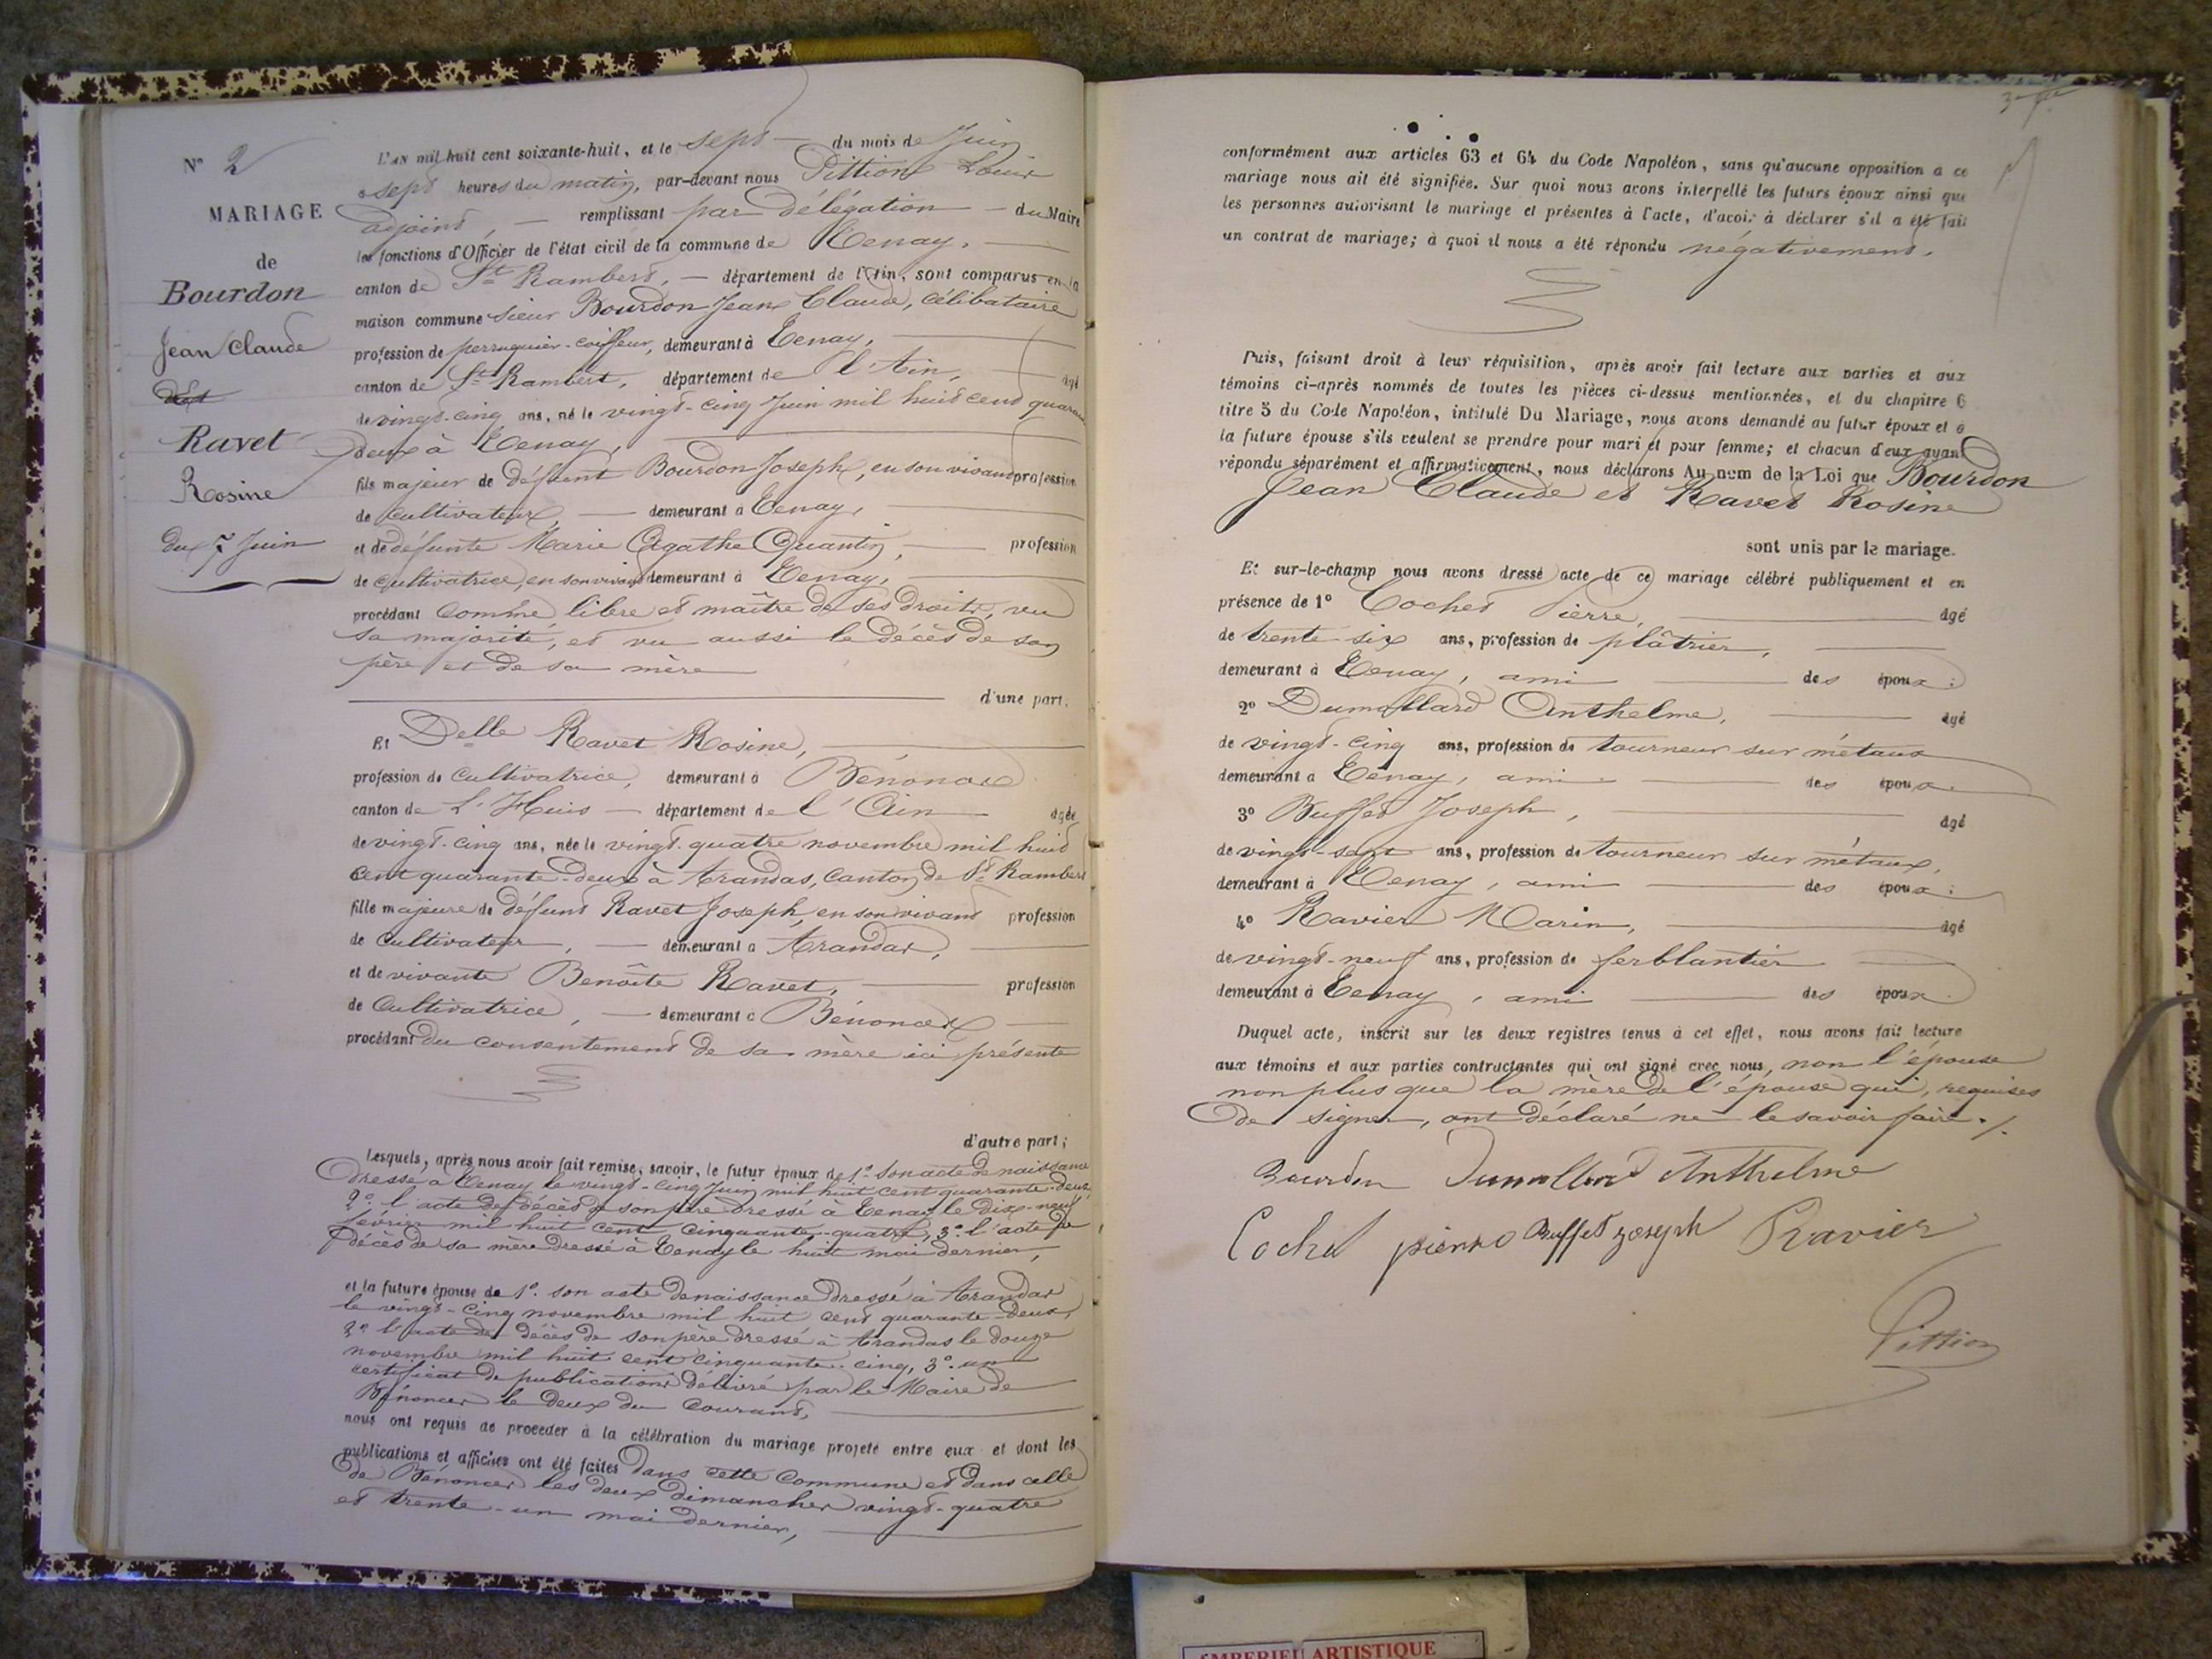 N° 2
MARIAGE
de
Bourdon
Jean Claude
Ravet
Rosine
du 7 Juin
L'AN mil huit cent soixante-huit, et le sept du mois de Juin
à sept heures du matin, par-devant nous Pittion Louis
adjoint, remplissant par Délégation du Maire
les fonctions d'Officier de l'état civil de la commune de Tenay,
canton de St Rambert, département de l'Ain, sont comparus en la
maison commune sieur Bourdon Jean Claude, célibataire
profession de perruquier-coiffeur, demeurant à Tenay,
canton de St Rambert, département de l'Ain, âgé
de vingt-cinq ans, né le vingt-cinq Juin mil huit cent quarante
deux à Tenay,
fils majeur de défunt Bourdon Joseph, en son vivant profession
de cultivateur, demeurant à Tenay,
et de défunte Marie Agathe Quantin, profession
de cultivatrice, en son vivant demeurant à Tenay,
procédant comme libre et maître de ses droits, vu
sa majorité, et vu aussi le décès de son
père et de sa mère
d'une part.
Et Delle Ravet Rosine,
profession de cultivatrice, demeurant à Bénonces
canton de L'Huis département de l'Ain âgée
de vingt-cinq ans, née le vingt-quatre novembre mil huit
cent quarante-deux à Arandas, canton de St Rambert
fille majeure de défunt Ravet Joseph, en son vivant profession
de cultivateur, demeurant à Arandas,
et de vivante Benoîte Ravet, profession
de cultivatrice, demeurant à Bénonces
procédant du consentement de sa mère ici présente
d'autre part;
Lesquels, après nous avoir fait remise, savoir, le futur époux de 1° son acte de naissance
dressé à Tenay le vingt-cinq Juin mil huit cent quarante-deux,
2° l'acte de décès de son père dressé à Tenay le dix-neuf
février mil huit cent cinquante-quatre, 3° l'acte de
décès de sa mère dressé à Tenay le huit mai dernier,
et la future épouse de 1° son acte de naissance dressé à Arandas
le vingt-cinq novembre mil huit cent quarante-deux,
2° l'acte de décès de son père dressé à Arandas le douze
novembre mil huit cent cinquante-cinq, 3° un
certificat de publications délivré par le Maire de
Bénonces le deux du courant,
nous ont requis de procéder à la célébration du mariage projeté entre eux et dont les
publications et affiches ont été faites dans cette commune et dans celle
de Bénonces les deux dimanches vingt-quatre
et trente-un mai dernier,
conformément aux articles 63 et 64 du Code Napoléon, sans qu'aucune opposition à ce
mariage nous ait été signifiée. Sur quoi nous avons interpellé les futurs époux ainsi que
les personnes autorisant le mariage et présentes à l'acte, d'avoir à déclarer s'il a été fait
un contrat de mariage; à quoi il nous a été répondu négativement.
Puis, faisant droit à leur réquisition, après avoir fait lecture aux parties et aux
témoins ci-après nommés de toutes les pièces ci-dessus mentionnées, et du chapitre 6
titre 5 du Code Napoléon, intitulé Du Mariage, nous avons demandé au futur époux et à
la future épouse s'ils veulent se prendre pour mari et pour femme; et chacun d'eux ayant
répondu séparément et affirmativement, nous déclarons Au nom de la Loi que Bourdon
Jean Claude et Ravet Rosine
sont unis par le mariage.
Et sur-le-champ nous avons dressé acte de ce mariage célébré publiquement et en
présence de 1° Cochet Pierre, âgé
de trente-six ans, profession de plâtrier,
demeurant à Tenay, ami des époux;
2° Dumollard Anthelme, âgé
de vingt-cinq ans, profession de tourneur sur métaux
demeurant à Tenay, ami des époux.
3° Buffet Joseph, âgé
de vingt-sept ans, profession de tourneur sur métaux,
demeurant à Tenay, ami des époux;
4° Ravier Marin, âgé
de vingt-neuf ans, profession de ferblantier
demeurant à Tenay, ami des époux.
Duquel acte, inscrit sur les deux registres tenus à cet effet, nous avons fait lecture
aux témoins et aux parties contractantes qui ont signé avec nous, non l'épouse
non plus que la mère de l'épouse qui, requises
de signer, ont déclaré ne le savoir faire ./.
Bourdon Dumollard Anthelme
Cochet pierre Buffet joseph Ravier
Pittion
ARTISTIQUE